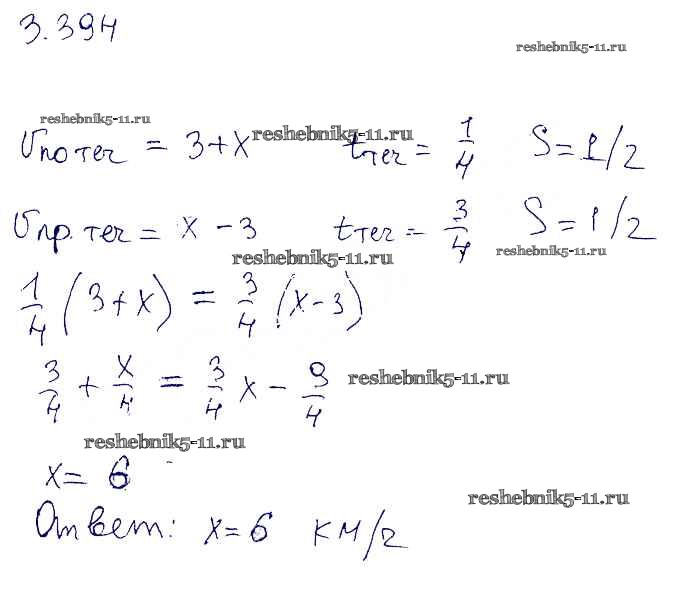 3.394
reshebnik5-11.ru
reshebnik5-11.ru
υпо теч = 3+x reshebnik5-11.ru tтеч = 1/4 S = 1/2
υпр. теч = x - 3 tтеч = 3/4 S = 1/2
reshebnik5-11.ru
reshebnik5-11.ru
1/4 (3+x) = 3/4 (x-3)
3/4 + x/4 = 3/4 x - 9/4 reshebnik5-11.ru
reshebnik5-11.ru
x = 6
reshebnik5-11.ru
Ответ: x=6 км/г